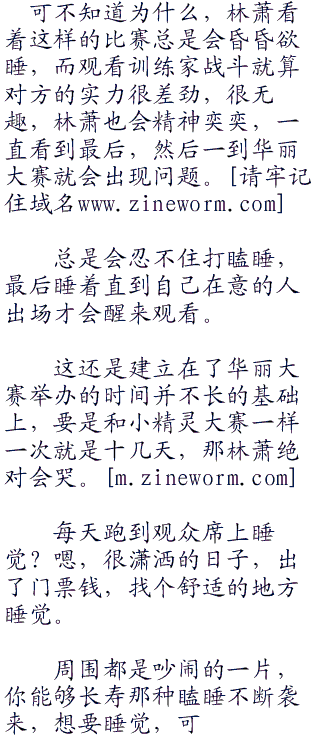 可不知道为什么，林萧看
着这样的比赛总是会昏昏欲
睡，而观看训练家战斗就算
对方的实力很差劲，很无
趣，林萧也会精神奕奕，一
直看到最后，然后一到华丽
大赛就会出现问题。[请牢记
住域名www.zineworm.com]
总是会忍不住打瞌睡，
最后睡着直到自己在意的人
出场才会醒来观看。
这还是建立在了华丽大
赛举办的时间并不长的基础
上，要是和小精灵大赛一样
一次就是十几天，那林萧绝
对会哭。[m.zineworm.com]
每天跑到观众席上睡
觉？嗯，很潇洒的日子，出
了门票钱，找个舒适的地方
睡觉。
周围都是吵闹的一片，
你能够长寿那种瞌睡不断袭
来，想要睡觉，可